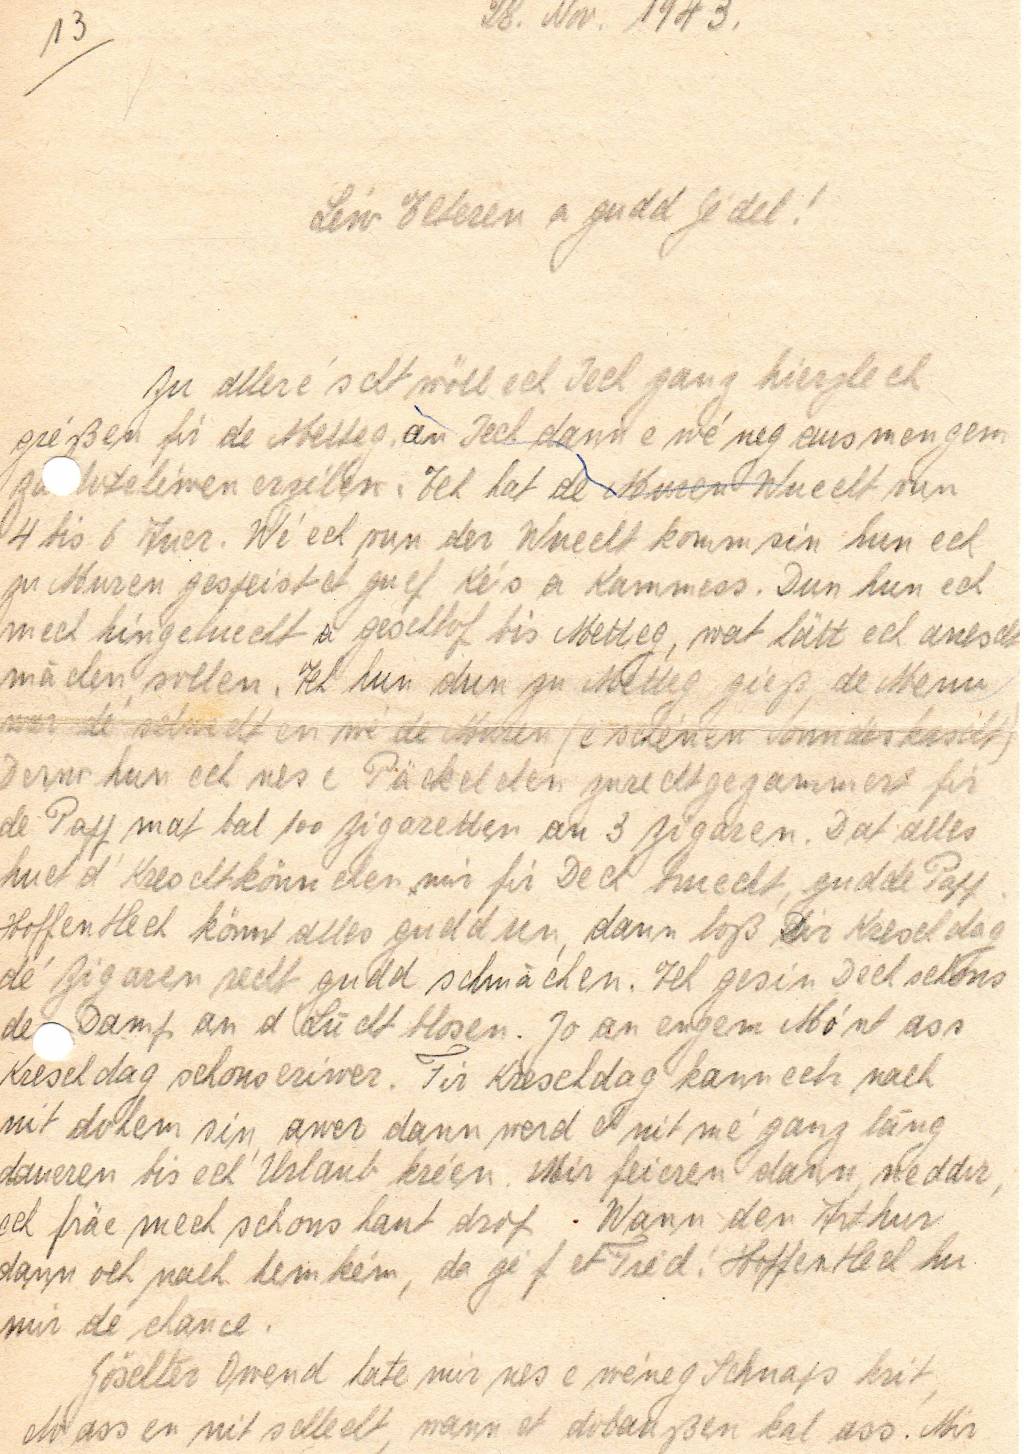 13
28. Nov. 1943.
Léiw Elteren a gudd Jédel!
Zu alleréscht wöll ech Iech ganz hierzlech
gréßen fir de Metteg, an Iech dann e wéneg aus mengem
erzilen. Ech hat de Muren Wuecht vun
4 bis 6 Auer. Wé ech vun der Wuecht komm sin hun ech
zu Muren gespeist et guef Kés a Kammess. Dun hun ech
mech hingeluecht a geschlof bis Metteg, wat hätt ech anescht
mächen sollen. Ech hun dun zu Metteg giess, de Menu
war dé selwecht en wé de Muren (e schéinen Sonndeskascht)
Derno hun ech nes e Päckelchen zurechtgezammert fir
de Papp mat bal 100 Zigaretten an 3 Zigaren. Dat alles
huet d' Kreschtkönnchen mir fir Dech bruecht, gudde Papp.
Hoffentlech könnt alles gudd un, dann loß Dir Kreschdag
dé Zigaren recht gudd schmächen. Ech gesin Dech schons
de Damp an d Lücht blosen. Jo an engem Mónt ass
Kreschdag schons eriwer. Fir Kreschdag kann ech nach
nit dohem sin, awer dann werd et nit mé ganz läng
daueren bis ech Urlaub kréen. Mir feieren dann nedder,
ech fräe mech schons haut drop. Wann den Arthur
dann och nach hemkém, da géf et Fréd! Hoffentlech hu
mir dé chance.
Göschter Owend hate mir nes e wéneg Schnaps krit,
do ass en nit schlecht, wann et dobaußen kal ass. Mir